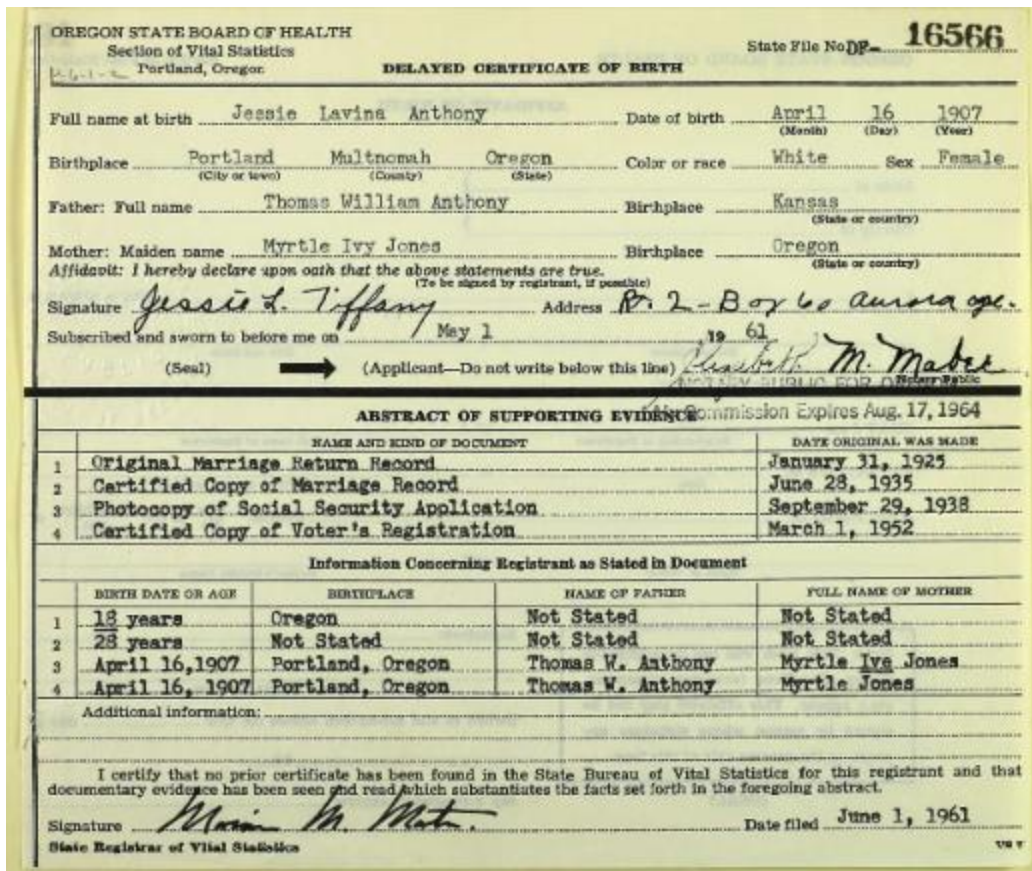 OREGON STATE BOARD OF HEALTH
Section of Vital Statistics
Portland, Oregon
State File No DF- 16566
DELAYED CERTIFICATE OF BIRTH
Full name at birth Jessie Lavina Anthony Date of birth April 16 1907
(Month) (Day) (Year)
Birthplace Portland Multnomah Oregon Color or race White Sex Female
(City or town) (County) (State)
Father: Full name Thomas William Anthony Birthplace Kansas
(State or country)
Mother: Maiden name Myrtle Ivy Jones Birthplace Oregon
(State or country)
Affidavit: I hereby declare upon oath that the above statements are true.
(To be signed by registrant, if possible)
Signature Jessie L. Tiffany Address Rt. 2 - Box 60 Aurora
Subscribed and sworn to before me on May 1 19 61
(Seal) (Applicant—Do not write below this line) Elizabeth M. Mabee
NOTARY PUBLIC FOR
Notary Public
Commission Expires Aug. 17, 1964
ABSTRACT OF SUPPORTING EVIDENCE
NAME AND KIND OF DOCUMENT DATE ORIGINAL WAS MADE
1 Original Marriage Return Record January 31, 1925
2 Certified Copy of Marriage Record June 28, 1935
3 Photocopy of Social Security Application September 29, 1938
4 Certified Copy of Voter's Registration March 1, 1952
Information Concerning Registrant as Stated in Document
BIRTH DATE OR AGE BIRTHPLACE NAME OF FATHER FULL NAME OF MOTHER
1 18 years Oregon Not Stated Not Stated
2 28 years Not Stated Not Stated Not Stated
3 April 16,1907 Portland, Oregon Thomas W. Anthony Myrtle Ive Jones
4 April 16, 1907 Portland, Oregon Thomas W. Anthony Myrtle Jones
Additional information:
I certify that no prior certificate has been found in the State Bureau of Vital Statistics for this registrant and that
documentary evidence has been seen and read which substantiates the facts set forth in the foregoing abstract.
Signature M. Date filed June 1, 1961
State Registrar of Vital Statistics